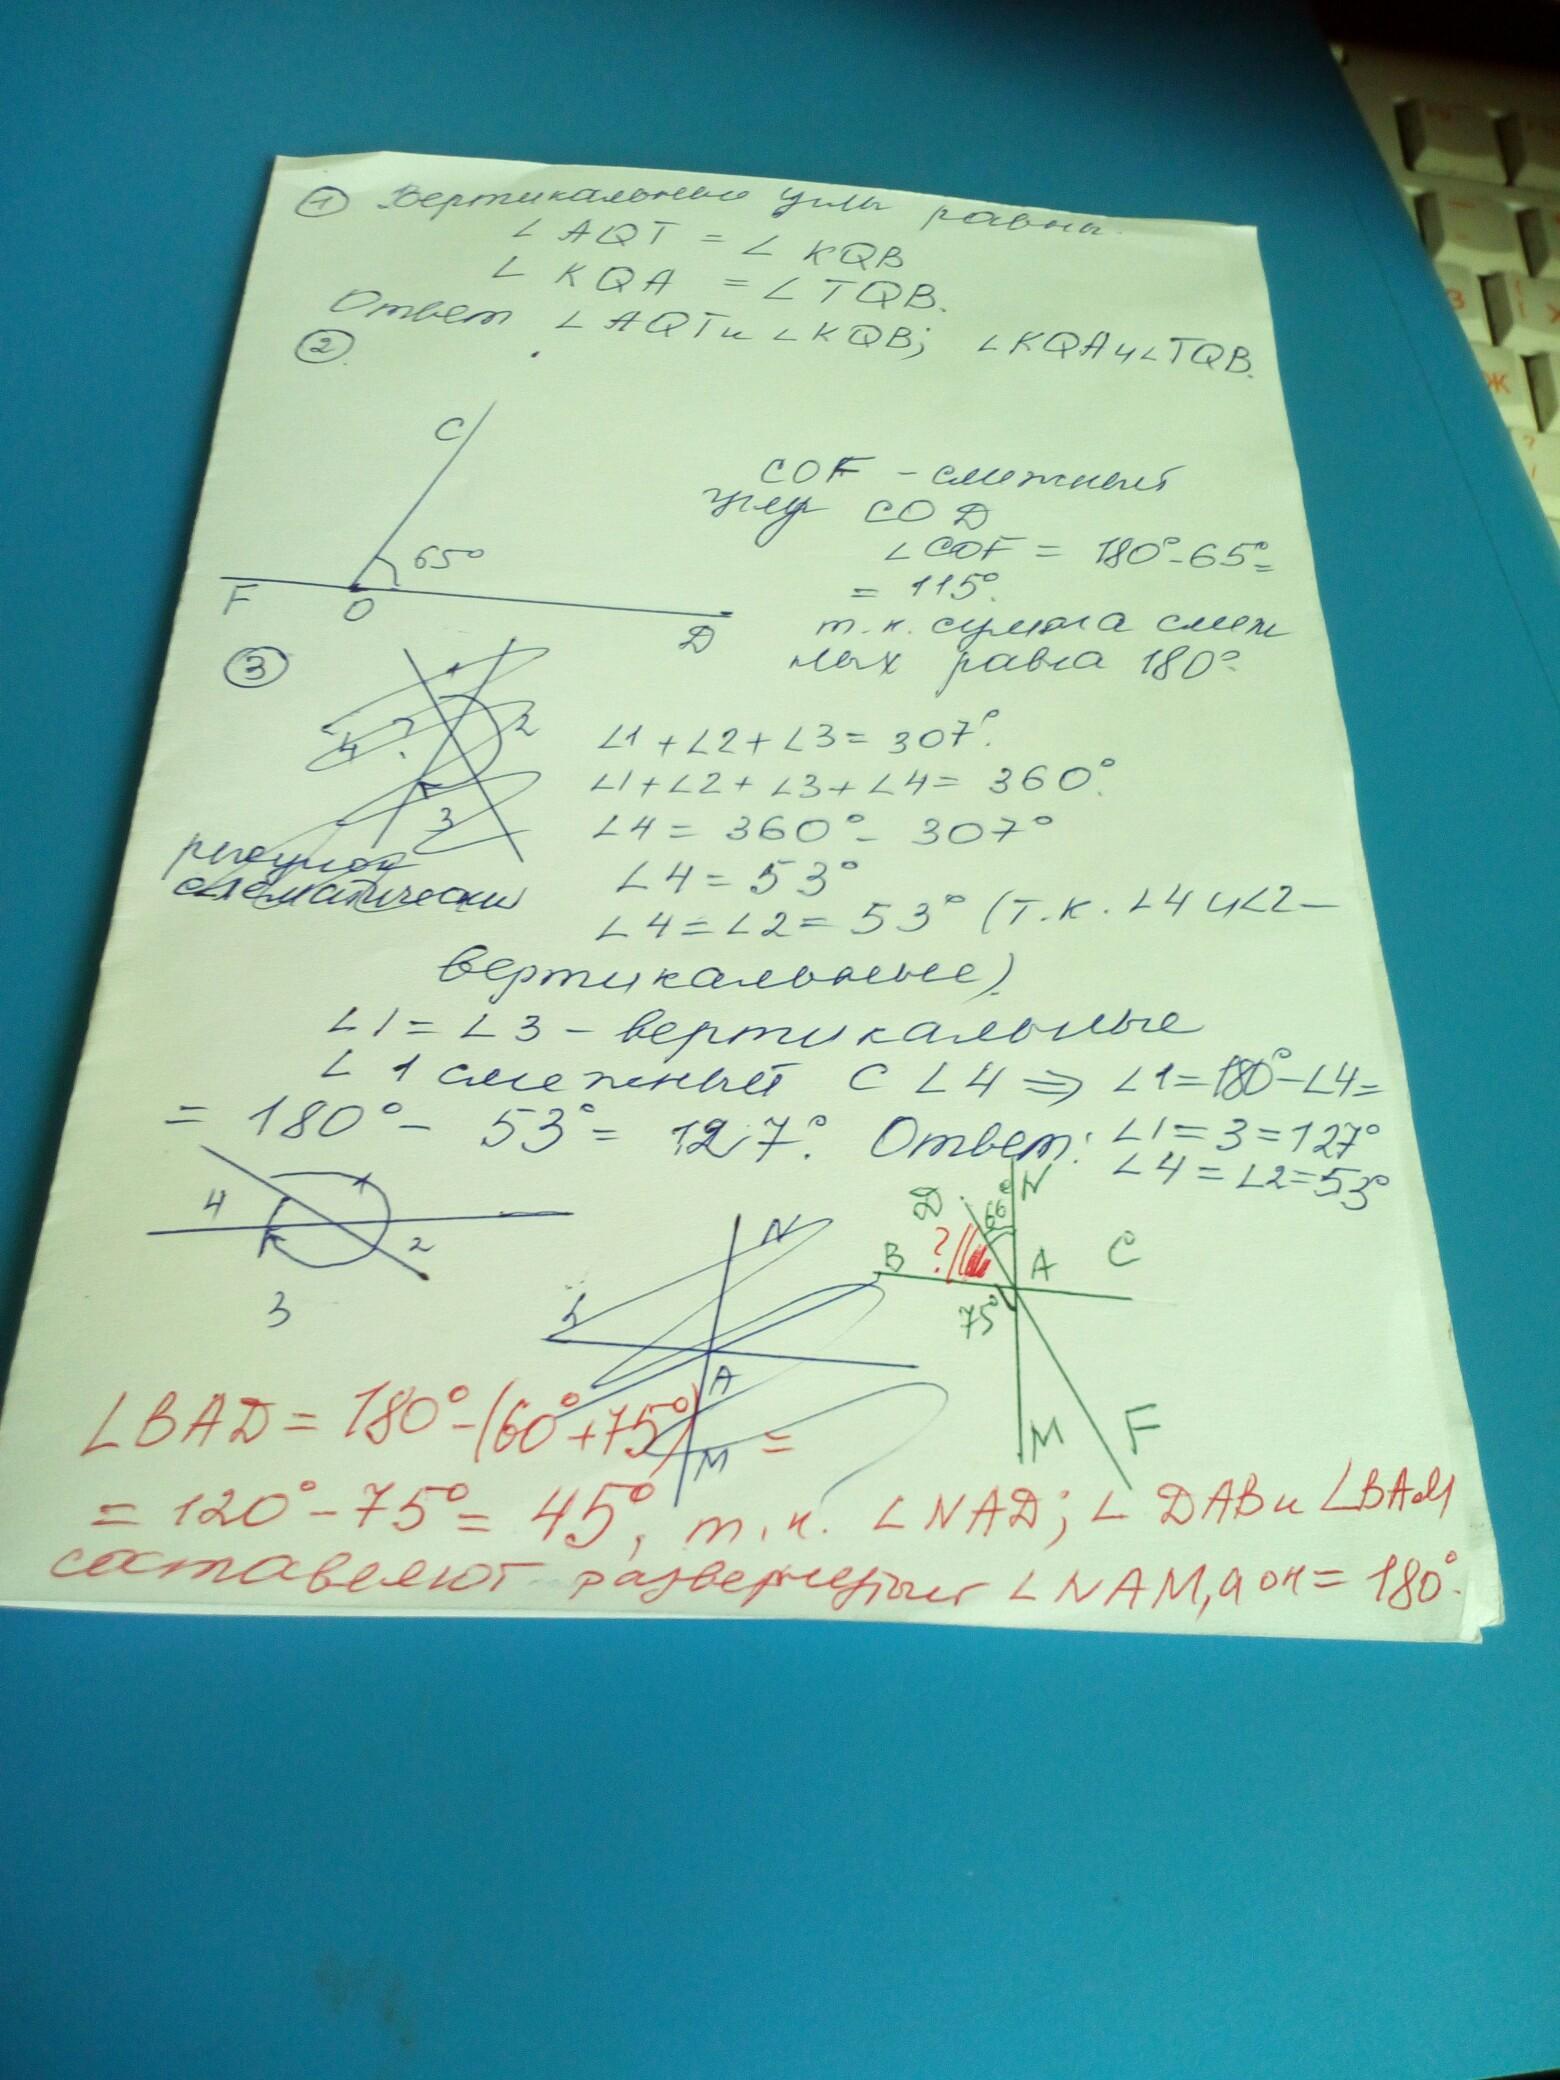 1 Вертикальные углы равны.
∠ AQT = ∠ KQB
∠ KQA = ∠ TQB.
Ответ ∠ AQT и ∠ KQB; ∠ KQA и ∠ TQB.
2
C
65°
F O D
COF - смежный
углу COD
∠COF = 180°-65°=
= 115°.
т.к. сумма смеж
ных равна 180°.
3
4 ? 2
3
рисунок
схематический
∠1 + ∠2 + ∠3 = 307°.
∠1 + ∠2 + ∠3 + ∠4 = 360°.
∠4 = 360° - 307°
∠4 = 53°
∠4 = ∠2 = 53° (т.к. ∠4 и ∠2 -
вертикальные).
∠1 = ∠3 - вертикальные
∠1 смежный с ∠4 ⇒ ∠1 = 180° - ∠4 =
= 180° - 53° = 127°. Ответ: ∠1 = 3 = 127°
∠4 = ∠2 = 53°
4 1
2
3
N
A
M
D N
B ? A C
75°
M F
∠BAD = 180° - (60° + 75°) =
= 120° - 75° = 45°, т.к. ∠NAD; ∠DAB и ∠BAM
составляют развернутый ∠NAM, а он = 180°.